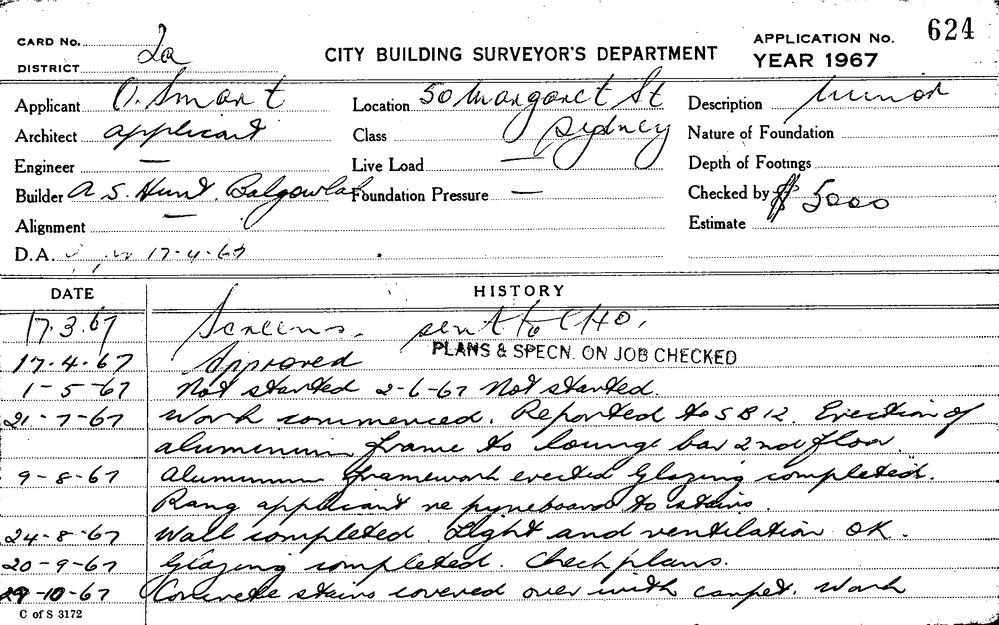 CARD No.
2a
DISTRICT
CITY BUILDING SURVEYOR'S DEPARTMENT
APPLICATION No. 624
YEAR 1967
Applicant O. Smart
Location 50 Margaret St
Sydney
Description Minor
Architect applicant
Class
Nature of Foundation
Engineer —
Live Load —
Depth of Footings
Builder A S. Hunt. Balgowlah
Foundation Pressure —
Checked by
$ 5000
Alignment —
Estimate
D.A. 17-4-67
DATE HISTORY
17.3.67 Screens. sent to CHO.
17-4-67 Approved PLANS & SPECN. ON JOB CHECKED
1-5-67 Not started 2-6-67 Not started.
21-7-67 Work commenced. Reported to S B 12. Erection of
aluminium frame to lounge bar 2nd floor
9-8-67 Aluminium framework erected Glazing completed.
Rang applicant re pyneboard to stairs.
24-8-67 Wall completed. Light and ventilation OK.
20-9-67 Glazing completed. Check plans.
-10-67 Concrete stairs covered over with carpet. Work
C of S 3172